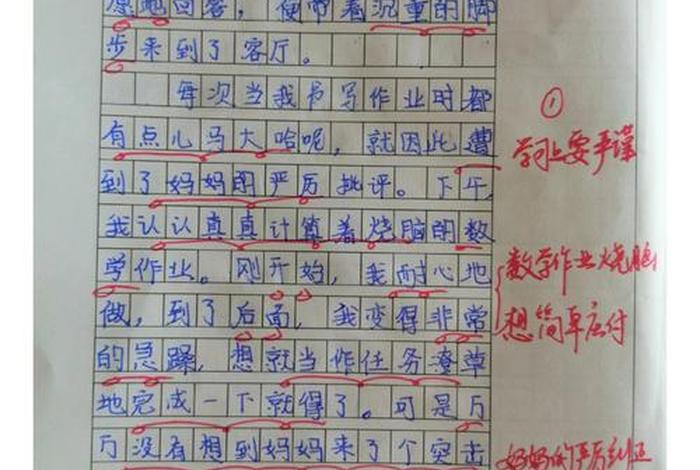 愿地回答,便带着沉重的脚
步来到了客厅。
每次当我书写作业时都
有点儿马大哈呢,就因此遭
到了妈妈的严厉批评。下午,
我认认真真计算着烧脑的数
学作业。刚开始,我耐心地
做,到了后面,我变得非常
的急躁,想就当作任务潦草
地完成一下就得了。可是万
万没有想到妈妈来了个突击
①
学习上要严谨
数学作业烧脑
想简单应付
妈妈的严厉纠正